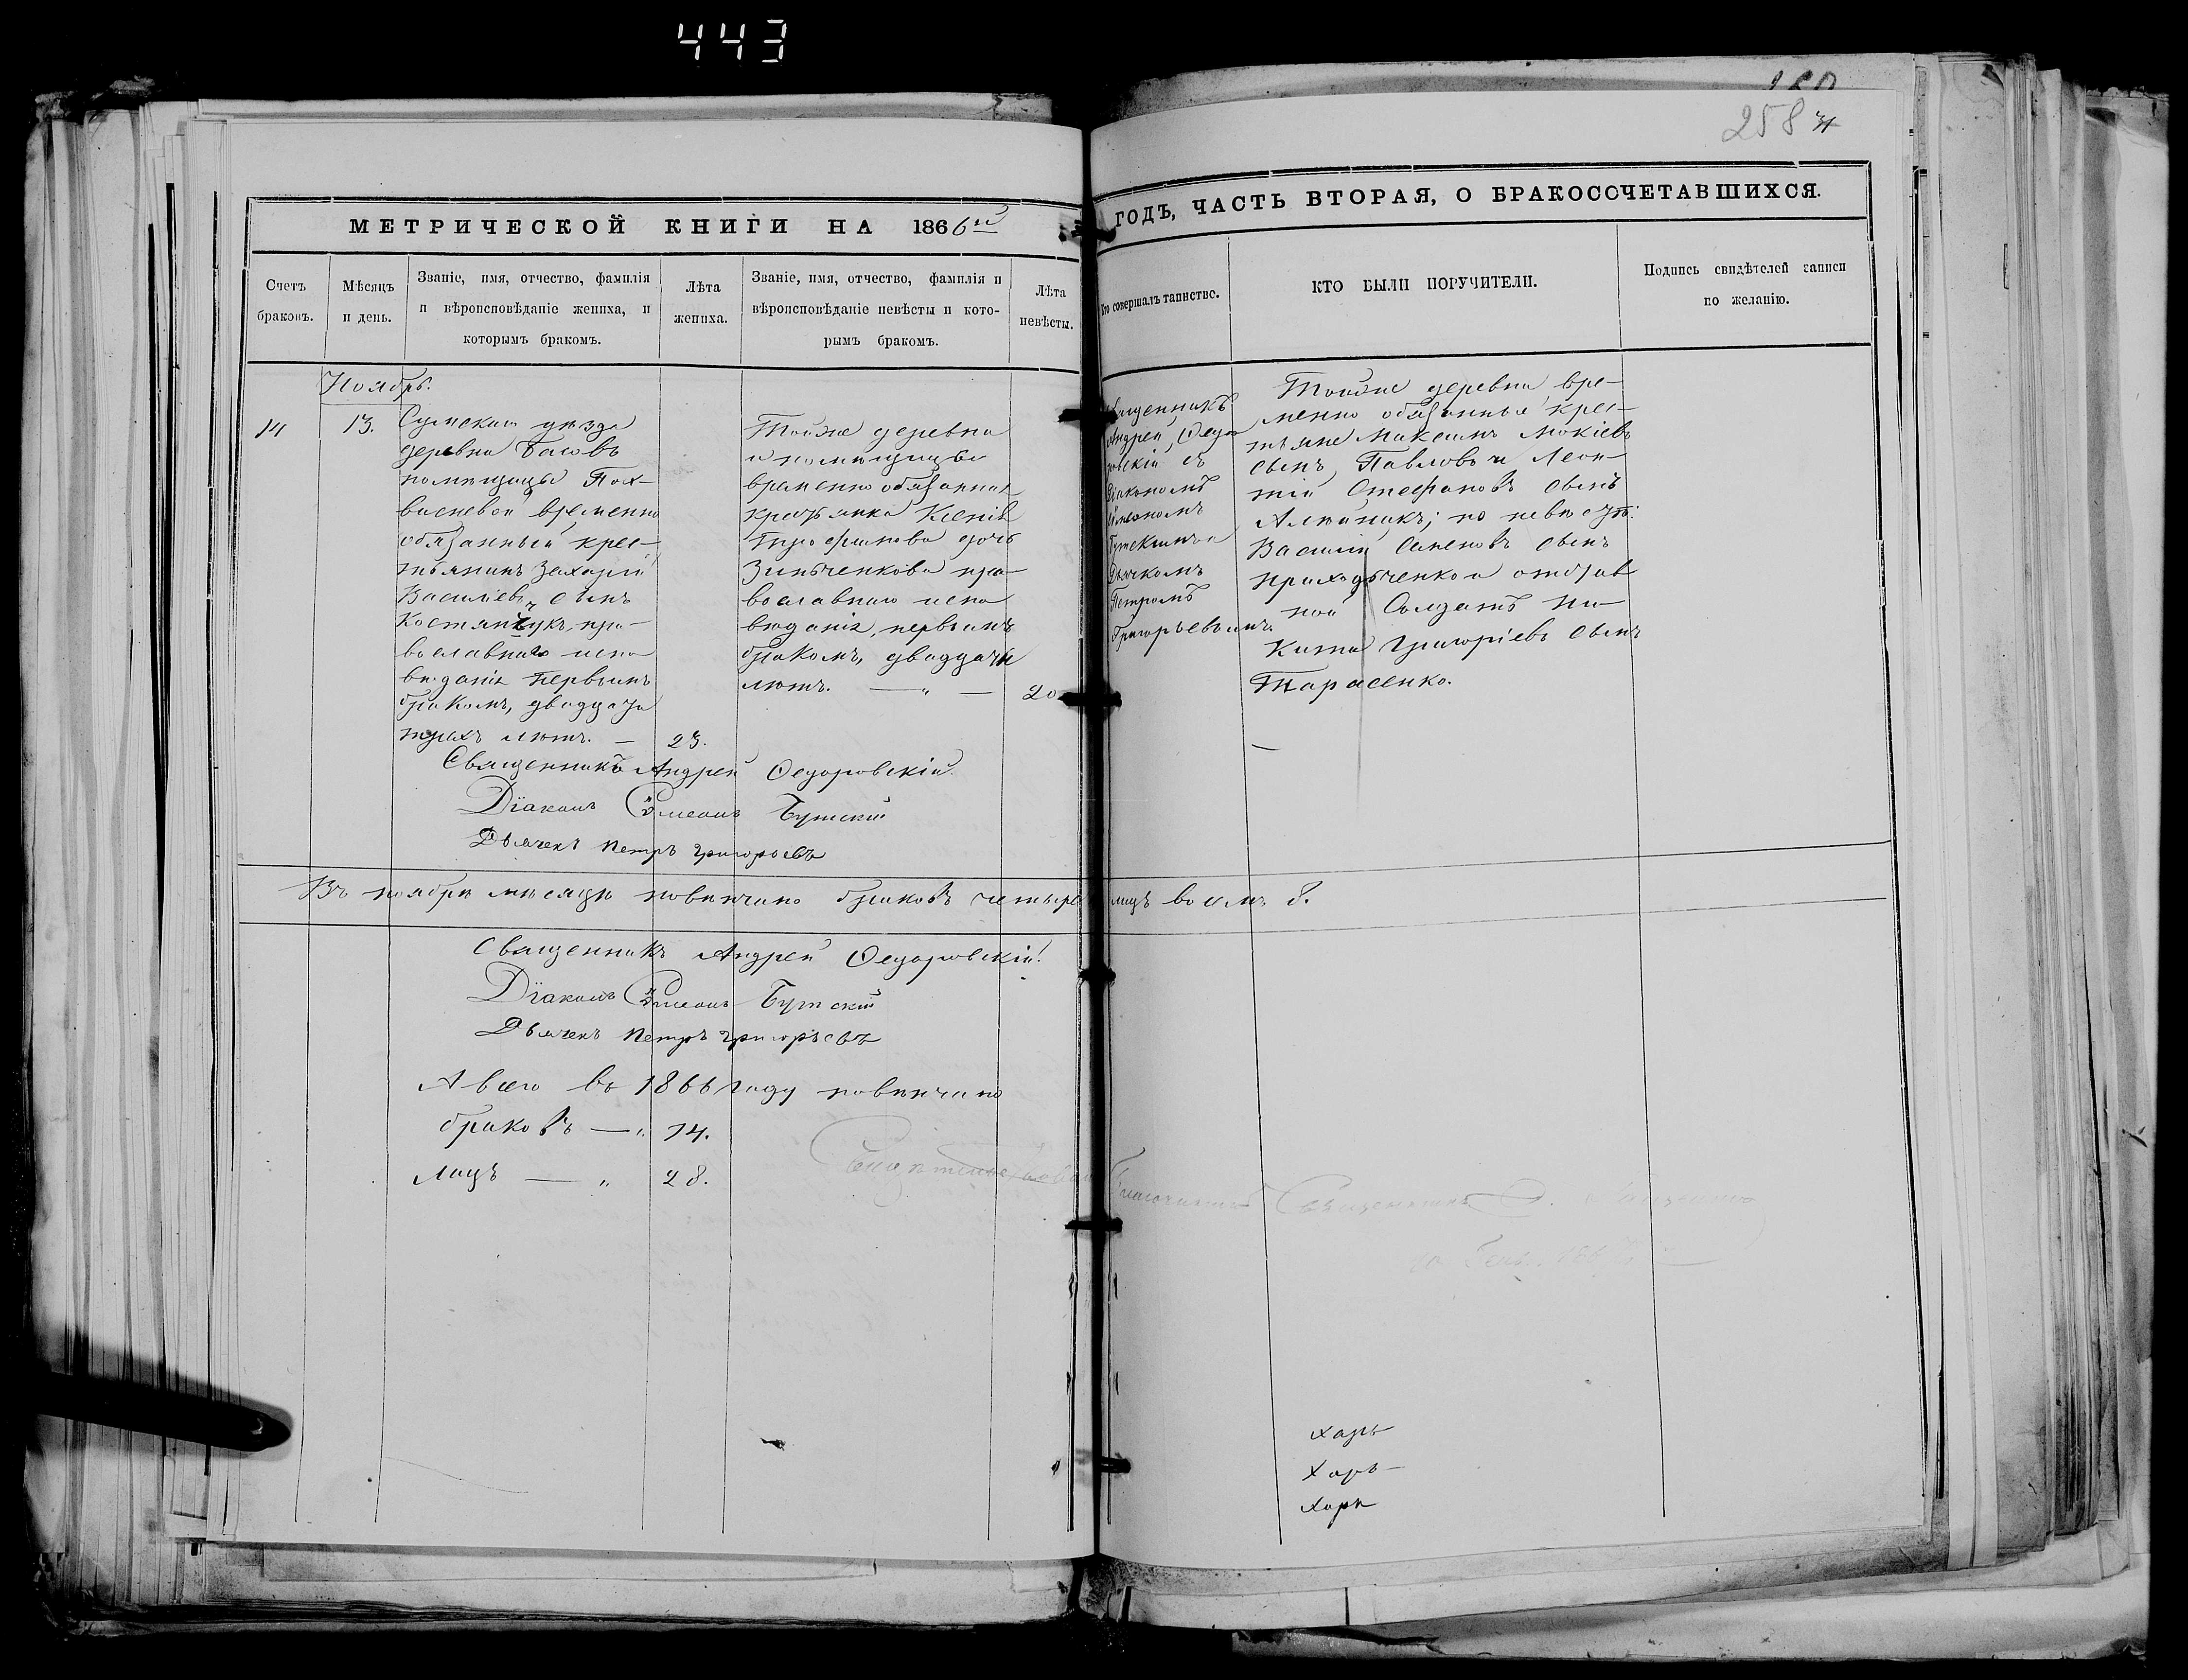 443
258
МЕТРИЧЕСКОЙ КНИГИ НА 1866й
ГОДЪ, ЧАСТЬ ВТОРАЯ, О БРАКОСОЧЕТАВШИХСЯ.
Счетъ браковъ.
Мѣсяцъ и день.
Званіе, имя, отчество, фамилія
и вѣроисповѣданіе жениха, и
которымъ бракомъ.
Лѣта жениха.
Званіе, имя, отчество, фамилія и
вѣроисповѣданіе невѣсты и кото-
рымъ бракомъ.
Лѣта невѣсты.
Кто совершалъ таинство.
КТО БЫЛИ ПОРУЧИТЕЛИ.
Подпись свидѣтелей записи
по желанію.
Ноябрь.
14
13.
Сумскаго уѣзда
деревни Басовъ
помѣщицы
временно
обязанный крес-
тьянинъ Захарій
Василіевъ сынъ
пра-
вославнаго испо
вѣданія первымъ
бракомъ, двадцати
трехъ лѣтъ. —
23.
Тойже деревни
и помѣщицы
временно обязанная
крестьянка Ксенія
Трофимова дочь
Зинченкова пра-
вославнаго испо
вѣданія, первымъ
бракомъ, двадцати
лѣтъ. — „ —
20
Священникъ
Андрей Ѳедо
ровскій съ
Діакономъ
Сѵмеономъ
Дьячкомъ
Петромъ
Григорьевымъ.
Тойже деревни вре-
менно обязанные крес-
тьяне Максимъ Мокіевъ
сынъ Павловъ и Леон-
тій Стефановъ сынъ
по невѣстѣ:
Василій Семеновъ сынъ
Приходченко и отстав
ной Солдатъ Ни-
кита Григоріевъ сынъ
Тарасенко.
—
Священникъ Андрей Ѳедоровскій.
Діаконъ Сѵмеонъ Бутскій
Дьячекъ Петръ Григорьевъ
Въ ноябрѣ мѣсяцѣ повѣнчано браковъ четыре лицъ восемь 8.
Священникъ Андрей Ѳедоровскій.
Діаконъ Сѵмеонъ Бутскій
Дьячекъ Петръ Григорьевъ
А всего въ 1866 году повѣнчано
браковъ — „ 14.
лицъ — „ 28.
Благочинный Священникъ
Харь
Харь —
Харь